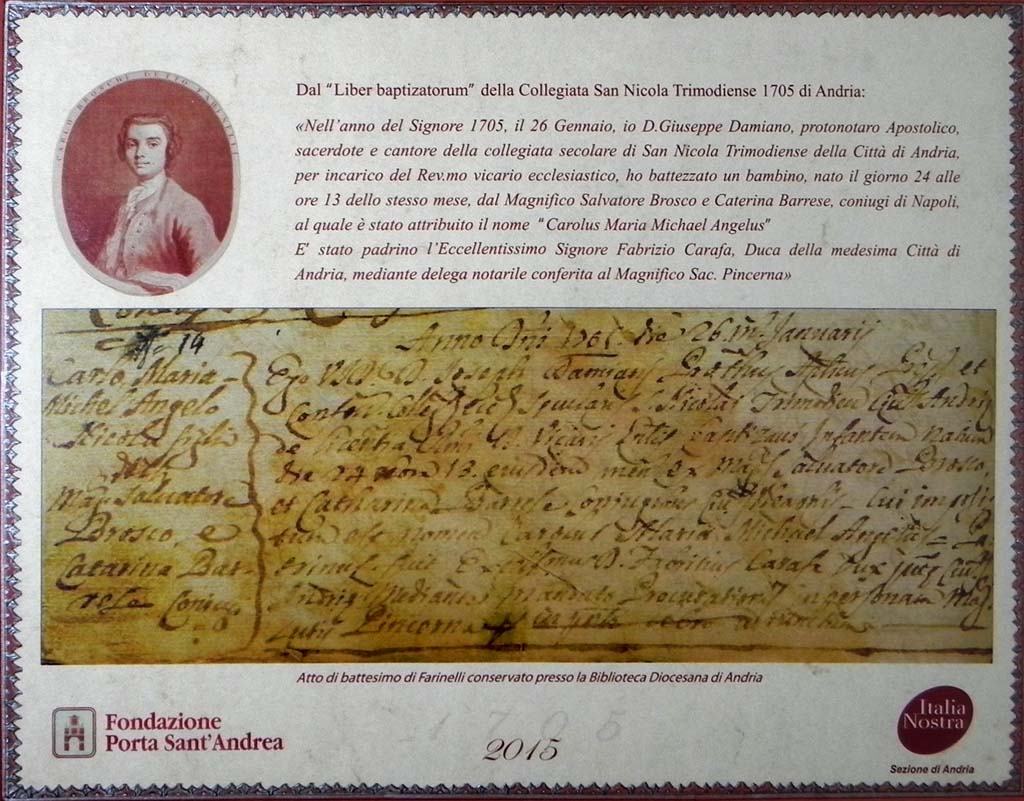 CARLO BROSCHI DETTO FARINELLI
Dal "Liber baptizatorum" della Collegiata San Nicola Trimodiense 1705 di Andria:
«Nell'anno del Signore 1705, il 26 Gennaio, io D.Giuseppe Damiano, protonotaro Apostolico,
sacerdote e cantore della collegiata secolare di San Nicola Trimodiense della Città di Andria,
per incarico del Rev.mo vicario ecclesiastico, ho battezzato un bambino, nato il giorno 24 alle
ore 13 dello stesso mese, dal Magnifico Salvatore Brosco e Caterina Barrese, coniugi di Napoli,
al quale è stato attribuito il nome "Carolus Maria Michael Angelus"
E' stato padrino l'Eccellentissimo Signore Fabrizio Carafa, Duca della medesima Città di
Andria, mediante delega notarile conferita al Magnifico Sac. Pincerna»
19
Carlo Maria
Michel Angelo
Nicola figlio
Salvatore
Brosco, e
Catarina Bar-
rese Coniug
Anno Dni 1705. die 26 Januarij
Ego Joseph Damiani et
Nicolai Trimodien Andrie
Infantem natum
die 24 hora 13. eiusdem Salvatore Brosco,
et Catharina Barrese Cui imposi-
tum nomen Carolus Maria Michael Angelus
Carafa Dux
Andrie in personam
Pincerna
Atto di battesimo di Farinelli conservato presso la Biblioteca Diocesana di Andria
Fondazione
Porta Sant'Andrea
1705
2015
Italia
Nostra
Sezione di Andria